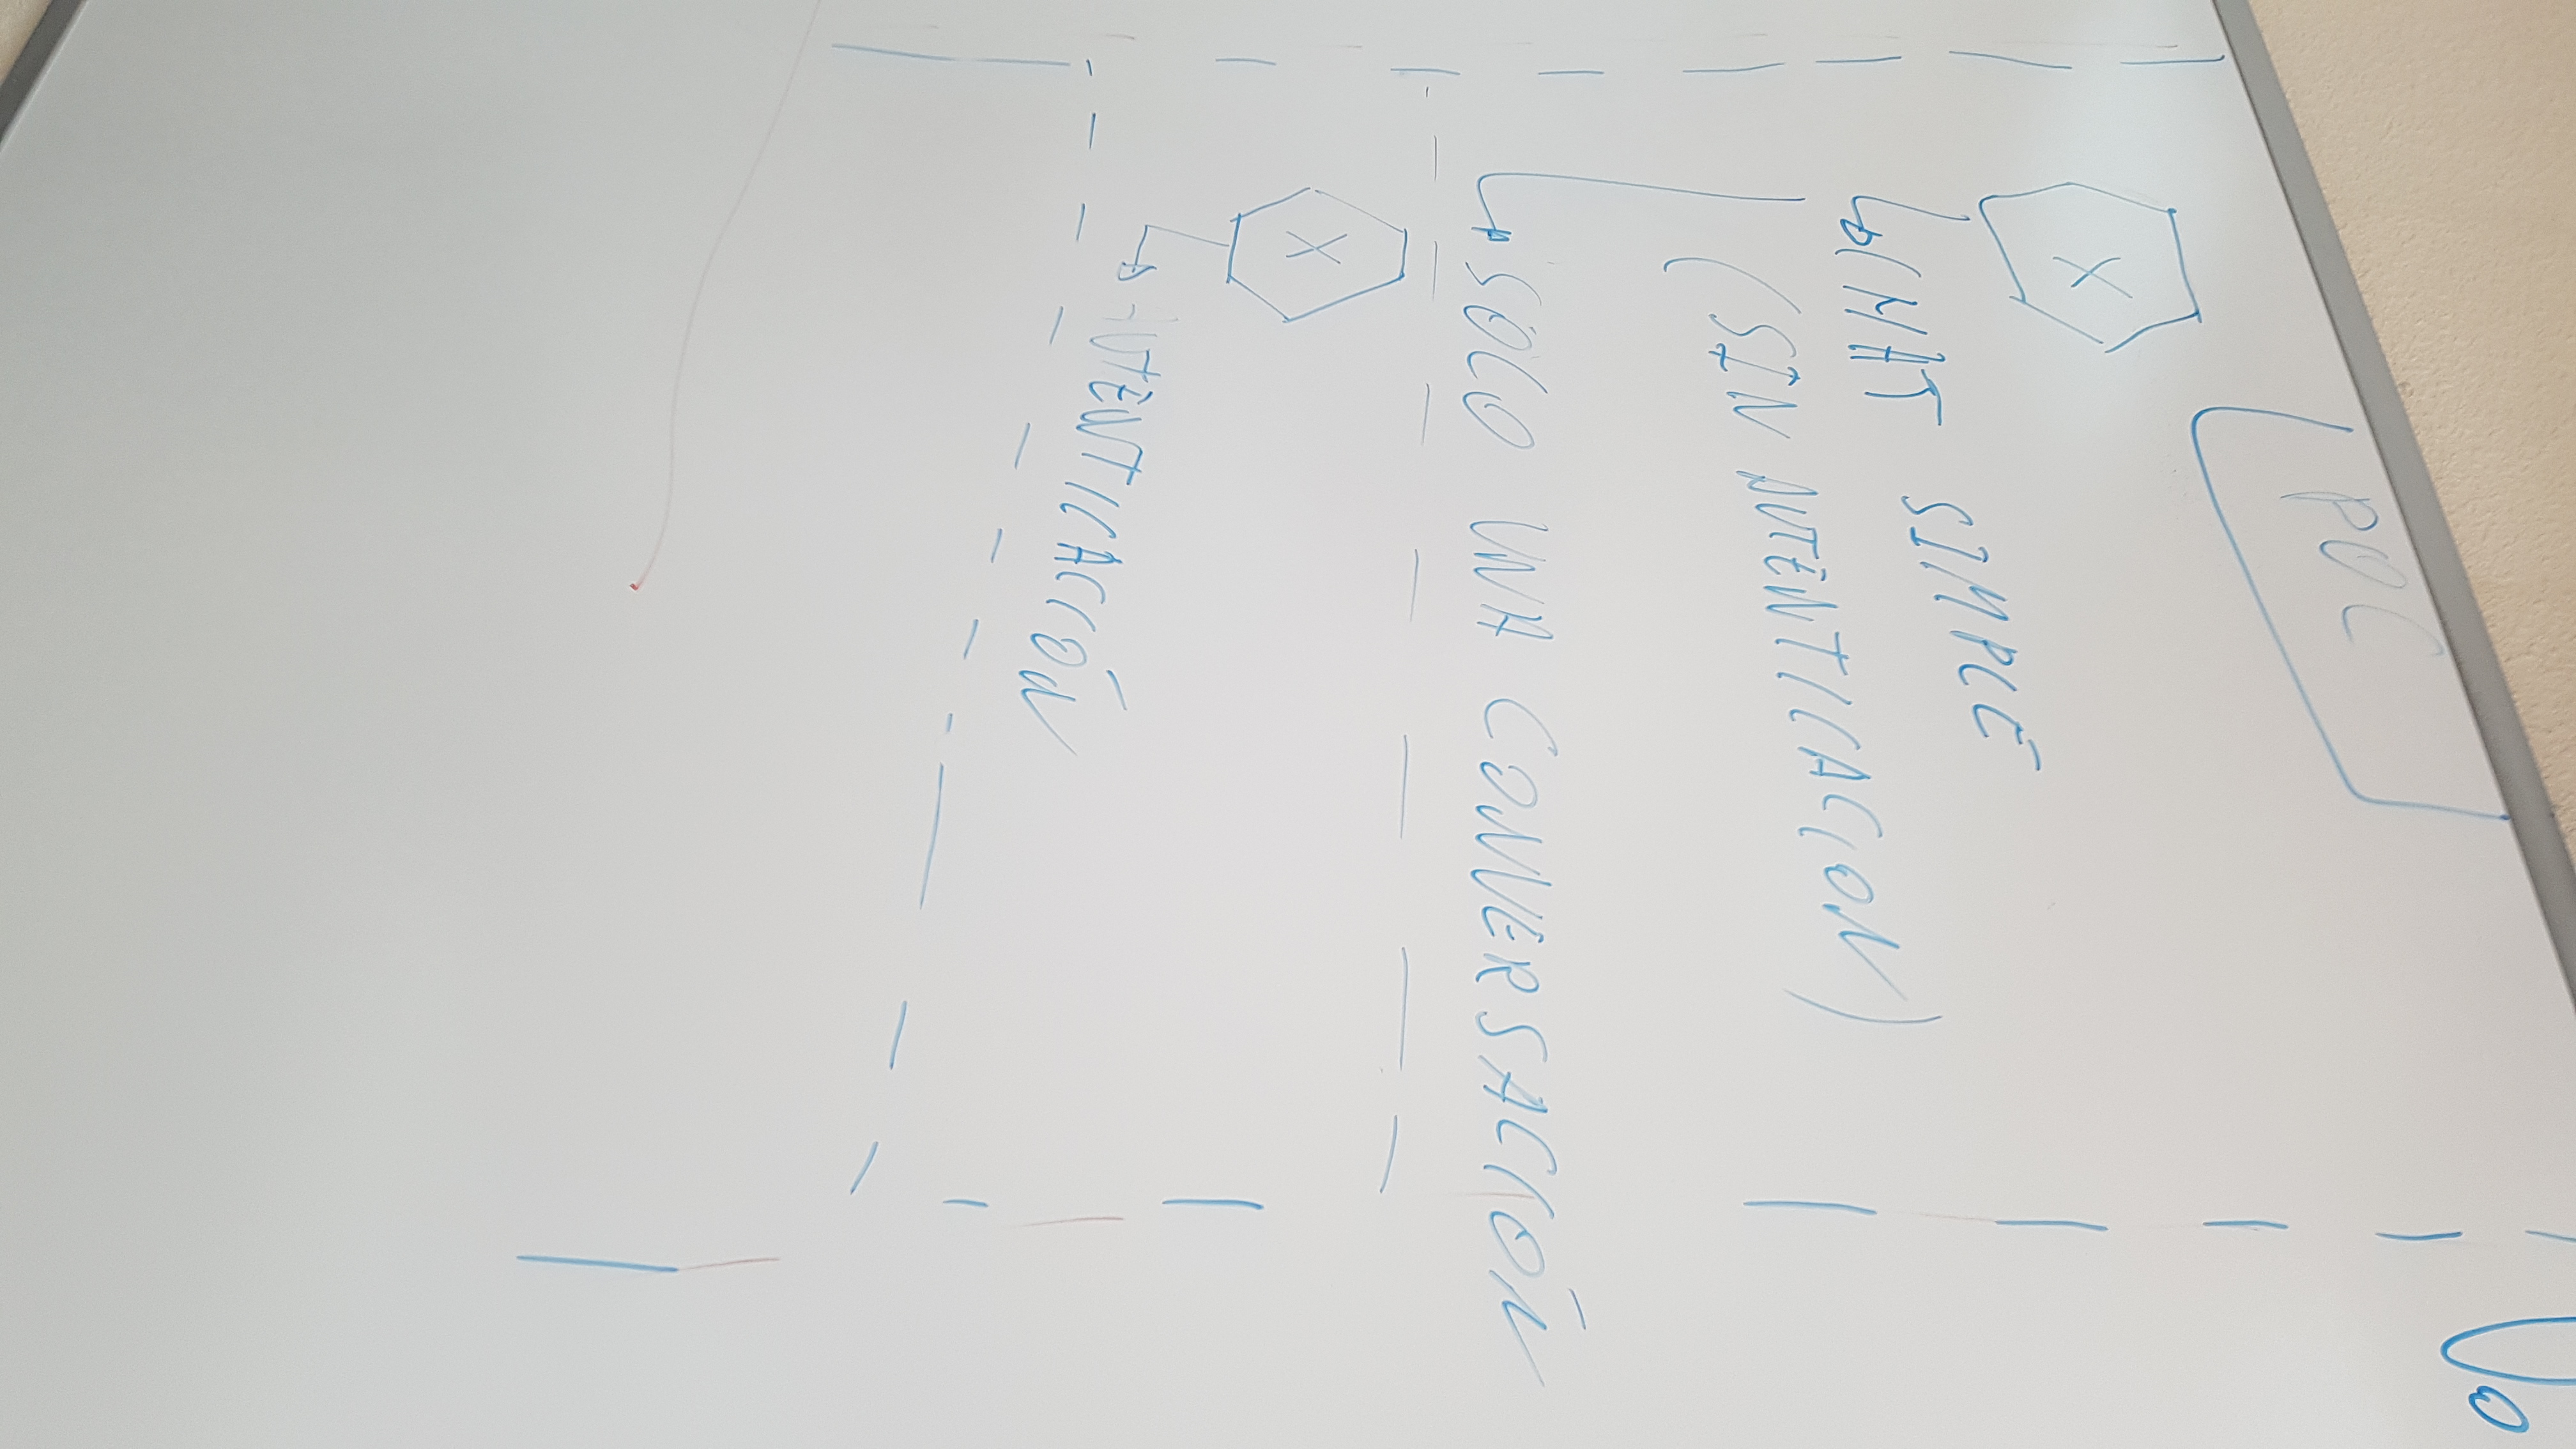 POC
X
CHAT SIMPLE
(SIN AUTENTICACION)
SOLO UNA CONVERSACIÓN
X
AUTENTICACIÓN